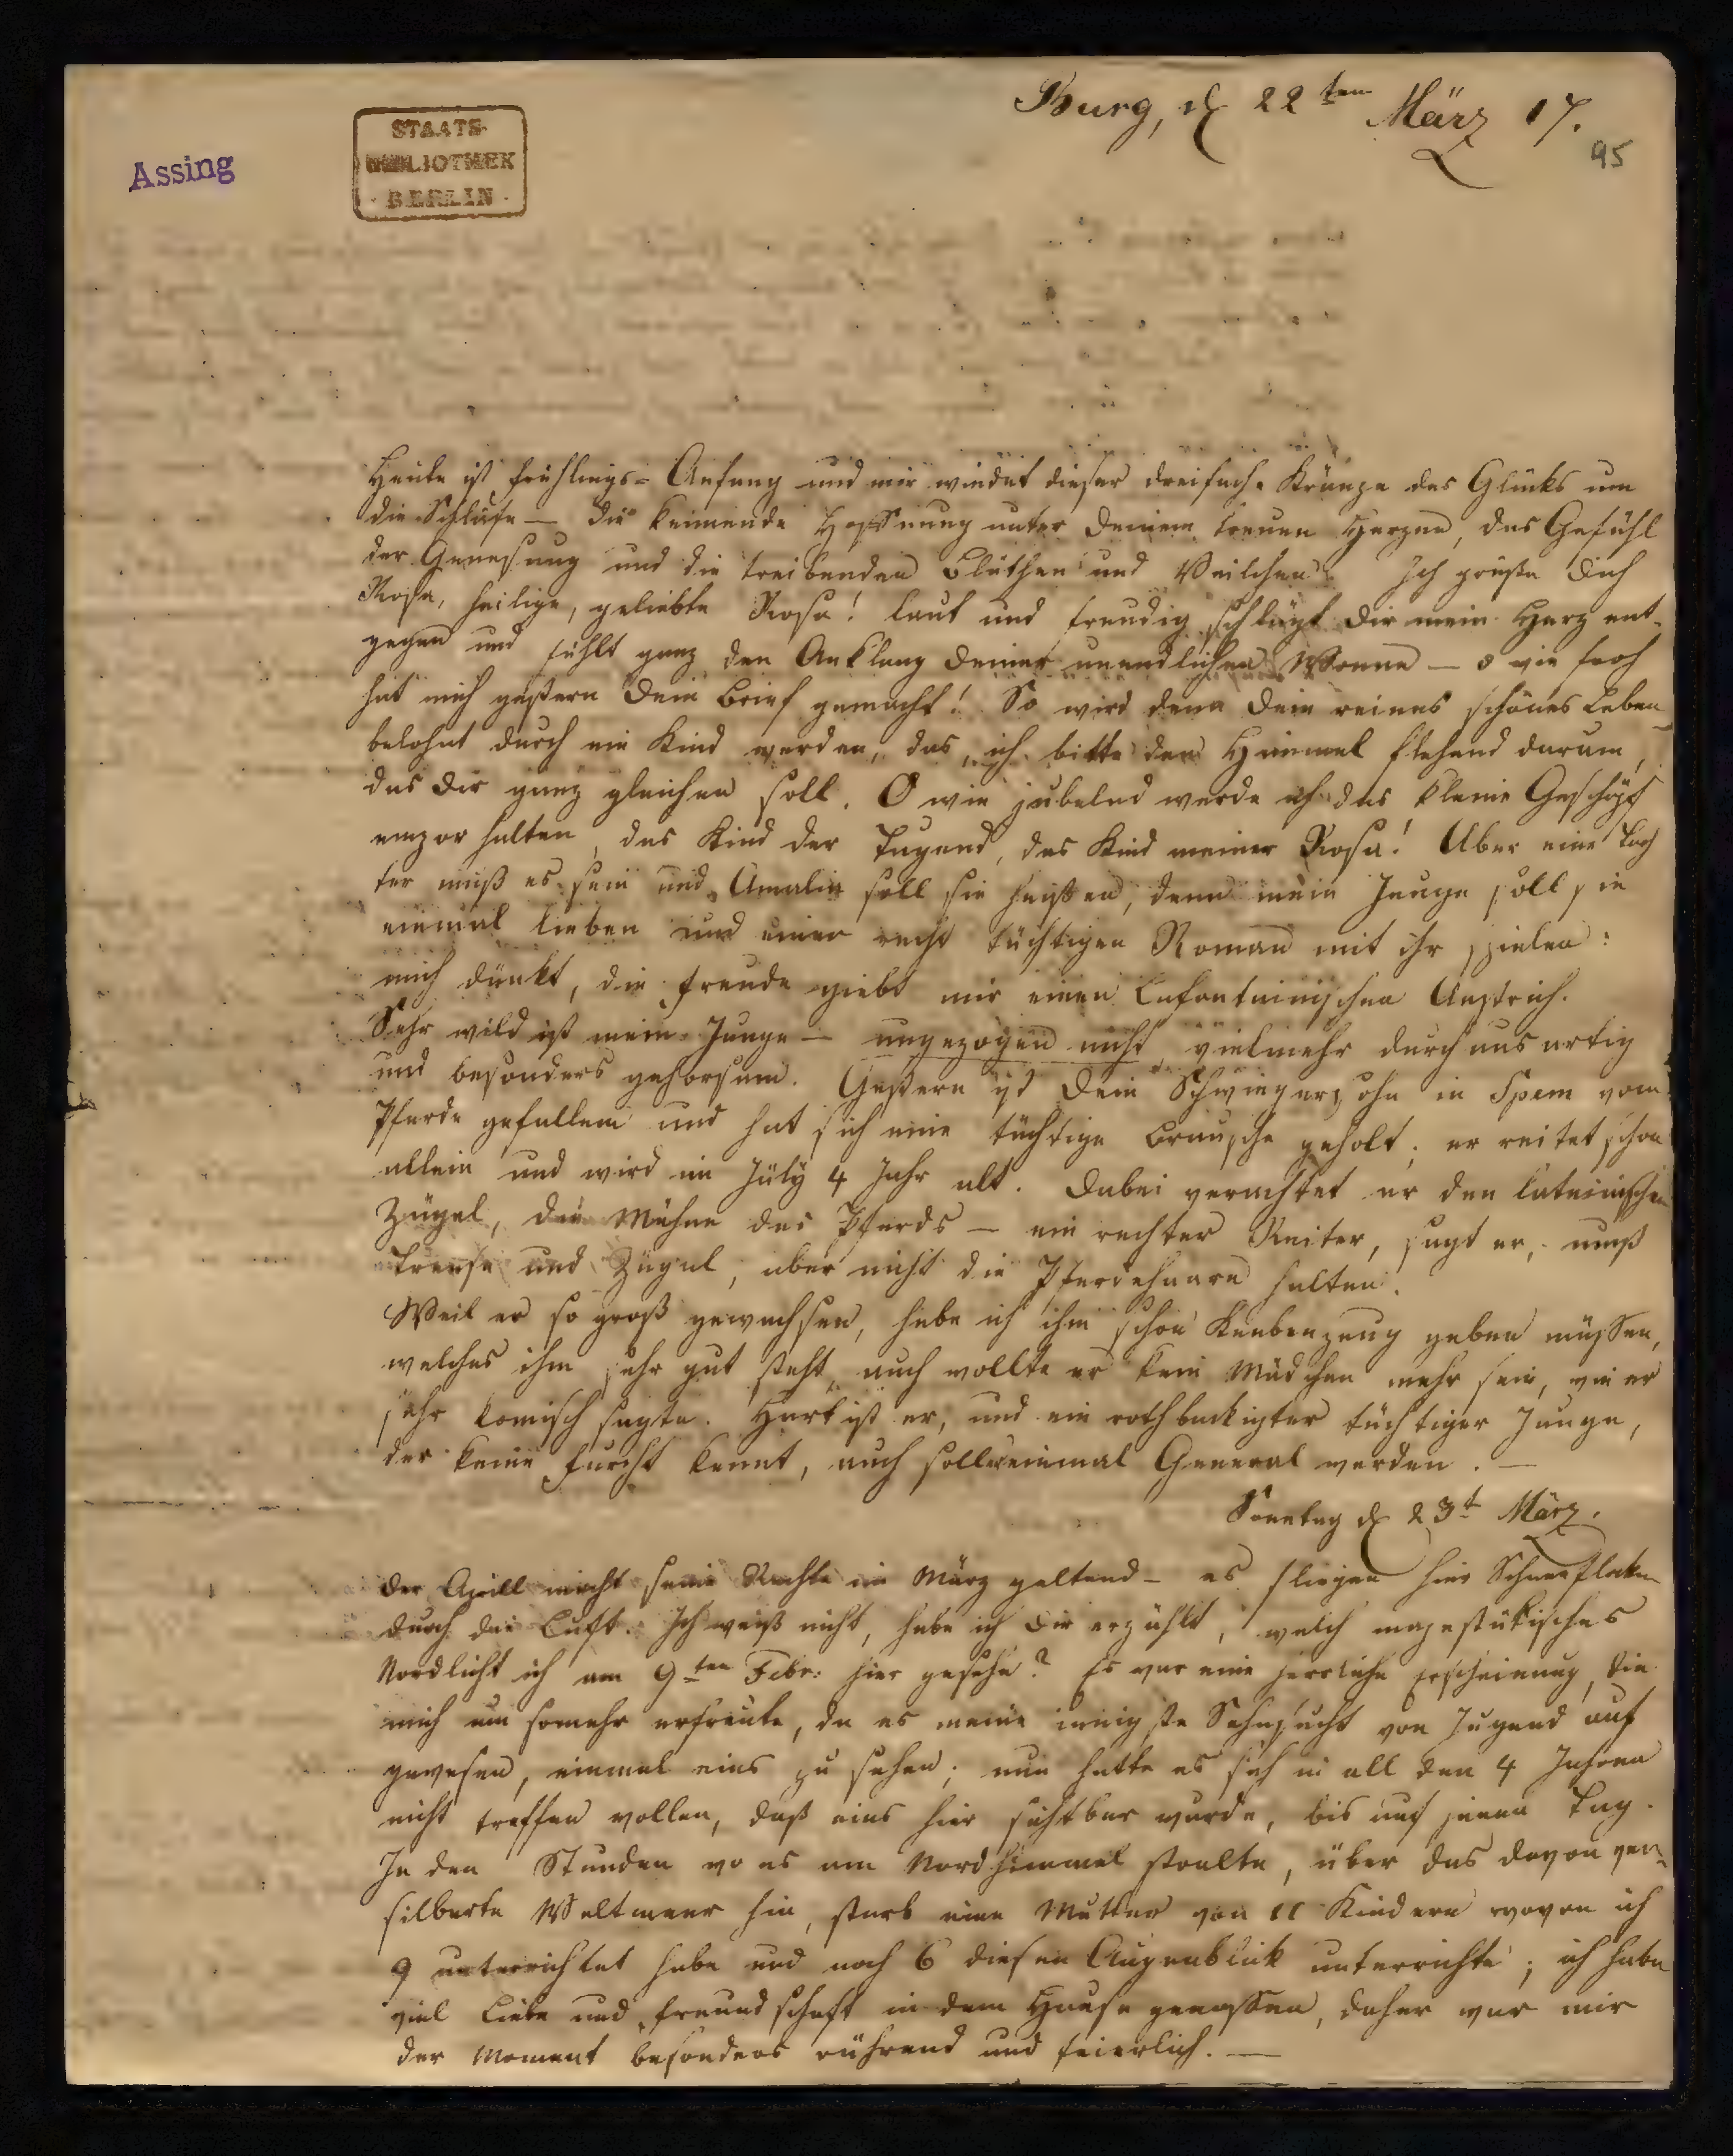 Burg, d 22ten März 17.
95
Assing
STAATS-
BIBLIOTHEK
· BERLIN ·
Heute ist Frühlings-Anfang und mir windet dieser dreifache Kränze des Glücks um
die Schläfe — die keimende Hoffnung unter Deinem treuen Herzen, das Gefühl
der Genesung und die treibenden Blüthen und Veilchen. Ich grüße Dich
Rosa, heilige, geliebte Rosa! laut und freudig schlägt Dir mein Herz ent-
gegen und fühlt ganz den Anklang Deiner unendlichen Wonne — o wie froh
hat mich gestern Dein Brief gemacht! So wird denn Dein reines schönes Leben
belohnt durch ein Kind werden, das, ich bitte den Himmel flehend darum,
das Dir ganz gleichen soll. O wie jubelnd werde ich das kleine Geschöpf
empor halten, das Kind der Tugend, das Kind meiner Rosa! Aber eine Toch
ter muß es sein und Amalie soll sie heißen, denn mein Junge soll sie
einmal lieben und einen recht tüchtigen Roman mit ihr spielen:
mich dünkt, die Freude giebt mir einen Lafontainischen Anstrich.
Sehr wild ist mein Junge — ungezogen nicht, vielmehr durchaus artig
und besonders gehorsam. Gestern ist Dein Schwiegersohn in Spem vom
Pferde gefallen und hat sich eine tüchtige Brausche geholt; er reitet schon
allein und wird im July 4 Jahr alt. Dabei verachtet er den lateinischen
Zügel, die Mähne des Pferds — ein rechter Reiter, sagt er, muß
Trense und Zügel, aber nicht die Pferdehaare halten.
Weil er so groß gewachsen, habe ich ihm schon Knabenzeug geben müssen,
welches ihm sehr gut steht, auch wollte er kein Mädchen mehr sein, wie er
sehr komisch sagte. Hart ist er, und ein rothbackigter tüchtiger Junge,
der keine Furcht kennt, auch soll er einmal General werden. —
Sonntag d 23t März.
Der Aprill macht seine Rechte im März geltend — es fliegen hier Schneeflocken
durch die Luft. Ich weiß nicht, habe ich Dir erzählt, welch majestätisches
Nordlicht ich am 9ten Febr: hier gesehn? Es war eine herrliche Erscheinung, die
mich um somehr erfreute, da es meine innigste Sehnsucht von Jugend auf
gewesen, einmal eins zu sehen; nun hatte es sich in all den 4 Jahren
nicht treffen wollen, daß eins hier sichtbar wurde, bis auf jenen Tag.
In den Stunden wo es am Nordhimmel stralte, über das davon ver-
silberte Weltmeer hin, starb eine Mutter von 11 Kindern wovon ich
9 unterrichtet habe und noch 6 diesen Augenblick unterrichte; ich habe
viel Liebe und Freundschaft in dem Hause genossen, daher war mir
der Moment besonders rührend und feierlich. —